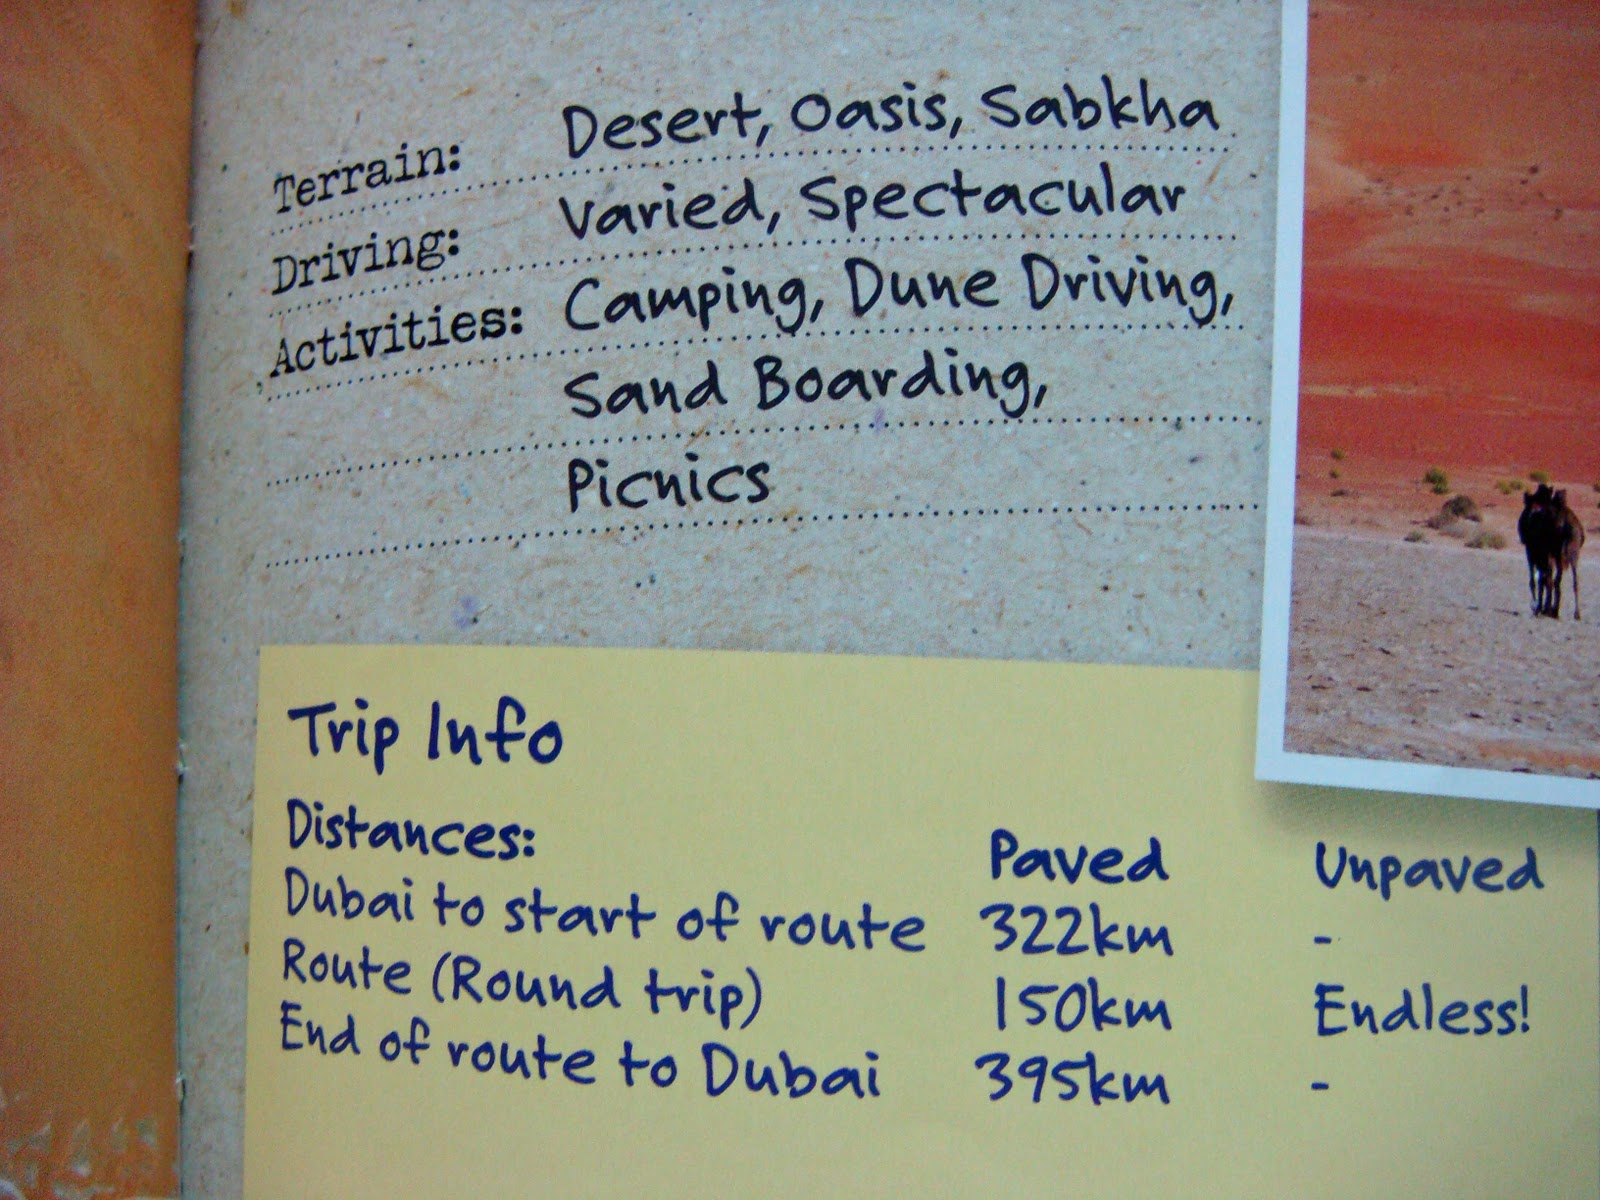 Terrain: Desert, Oasis, Sabkha
Driving: Varied, Spectacular
Activities: Camping, Dune Driving,
Sand Boarding,
Picnics
Trip Info
Distances: Paved Unpaved
Dubai to start of route 322km -
Route (Round trip) 150km Endless!
End of route to Dubai 395km -